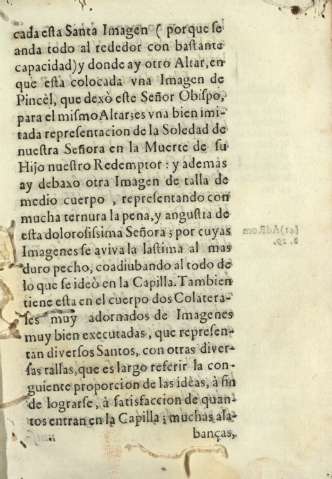 cada esta Santa Imagen ( porque se
anda todo al rededor con bastante
capacidad) y donde ay otro Altar, en
que esta colocada vna Imagen de
Pincèl, que dexò este Señor Obispo,
para el mismo Altar; es vna bien imi-
tada representacion de la Soledad de
nuestra Señora en la Muerte de su
Hijo nuestro Redemptor: y además
ay debaxo otra Imagen de talla de
medio cuerpo, representando con
mucha ternura la pena, y angustia de
esta dolorosissima Señora; por cuyas
Imagenes se aviva la lastima al mas
duro pecho, coadiubando al todo de
lo que se ideò en la Capilla. Tambien
tiene esta en el cuerpo dos Colatera-
les muy adornados de Imagenes
muy bien executadas, que represen-
tan diversos Santos, con otras diver-
sas tallas, que es largo referir la con-
guiente proporcion de las idèas, à fin
de lograrse, à satisfaccion de quan-
tos entran en la Capilla; muchas ala-
banças,